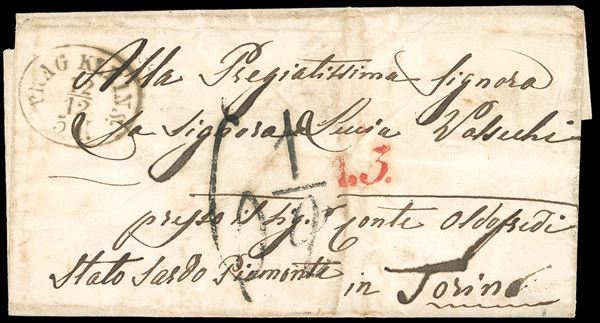 PRAG KLEINS.
12
Alla Pregiatissima Signora
La Signora Lucia Valsechi
L.3.
presso il Sig.r Conte Oldofredi
Stato Sardo Piemonte in Torino